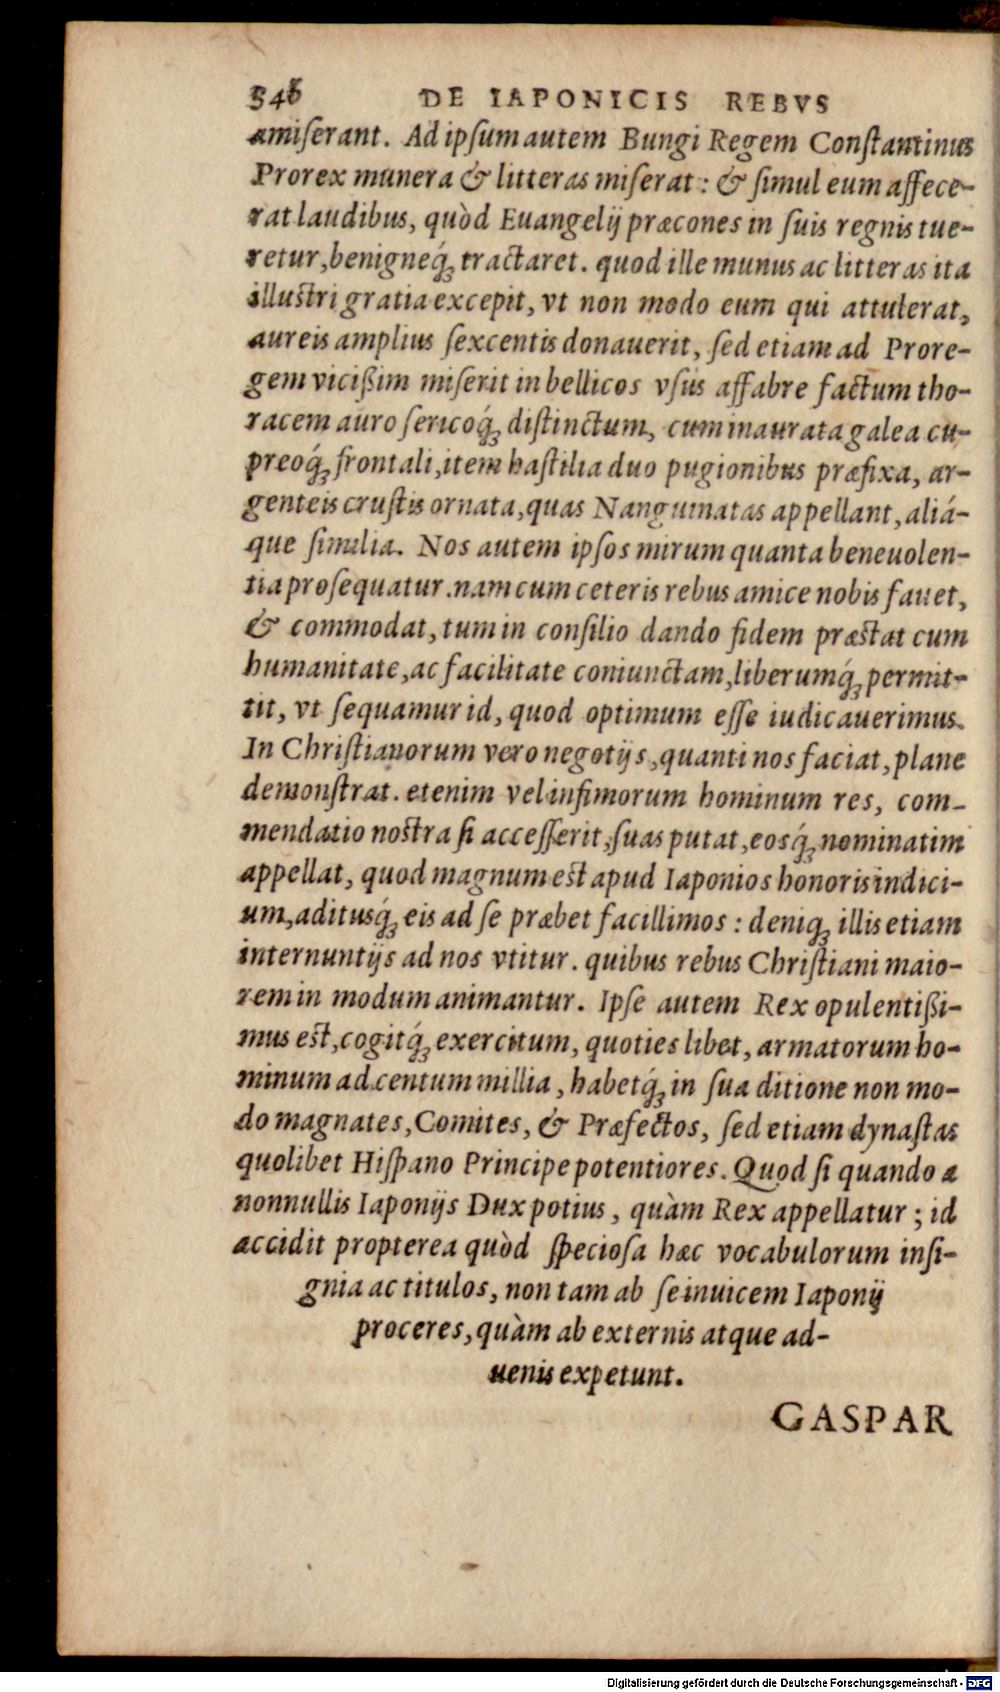 346 DE IAPONICIS REBVS
amiſerant. Ad ipſum autem Bungi Regem Conſtantinus
Prorex munera & litteras miſerat: & ſimul eum affece-
rat laudibus, quòd Euangelij præcones in ſuis regnis tue-
retur, benigneq́ꝫ tractaret. quod ille munus ac litteras ita
illuſtri gratia excepit, vt non modo eum qui attulerat,
aureis amplius ſexcentis donauerit, ſed etiam ad Prore-
gem vicißim miſerit in bellicos vſus affabre factum tho-
racem auro ſericoq́ꝫ diſtinctum, cum inaurata galea cu-
preoq́ꝫ frontali, item haſtilia duo pugionibus præfixa, ar-
genteis cruſtis ornata, quas Nanguinatas appellant, aliá-
que ſimilia. Nos autem ipſos mirum quanta beneuolen-
tia proſequatur. nam cum ceteris rebus amice nobis fauet,
& commodat, tum in conſilio dando fidem præſtat cum
humanitate, ac facilitate coniunctam, liberumq́ꝫ permit-
tit, vt ſequamur id, quod optimum eſſe iudicauerimus.
In Chriſtianorum vero negotijs, quanti nos faciat, plane
demonſtrat. etenim vel infimorum hominum res, com-
mendatio noſtra ſi acceſſerit, ſuas putat, eosq́ꝫ nominatim
appellat, quod magnum eſt apud Iaponios honoris indici-
um, aditusq́ꝫ eis ad ſe præbet facillimos: deniqꝫ illis etiam
internuntijs ad nos vtitur. quibus rebus Chriſtiani maio-
rem in modum animantur. Ipſe autem Rex opulentißi-
mus eſt, cogitq́ꝫ exercitum, quoties libet, armatorum ho-
minum ad centum millia, habetq́ꝫ in ſua ditione non mo-
do magnates, Comites, & Præfectos, ſed etiam dynaſtas
quolibet Hiſpano Principe potentiores. Quod ſi quando a
nonnullis Iaponijs Dux potius, quàm Rex appellatur; id
accidit propterea quòd ſpecioſa hæc vocabulorum inſi-
gnia ac titulos, non tam ab ſe inuicem Iaponij
proceres, quàm ab externis atque ad-
uenis expetunt.
GASPAR
Digitalisierung gefördert durch die Deutsche Forschungsgemeinschaft - DFG